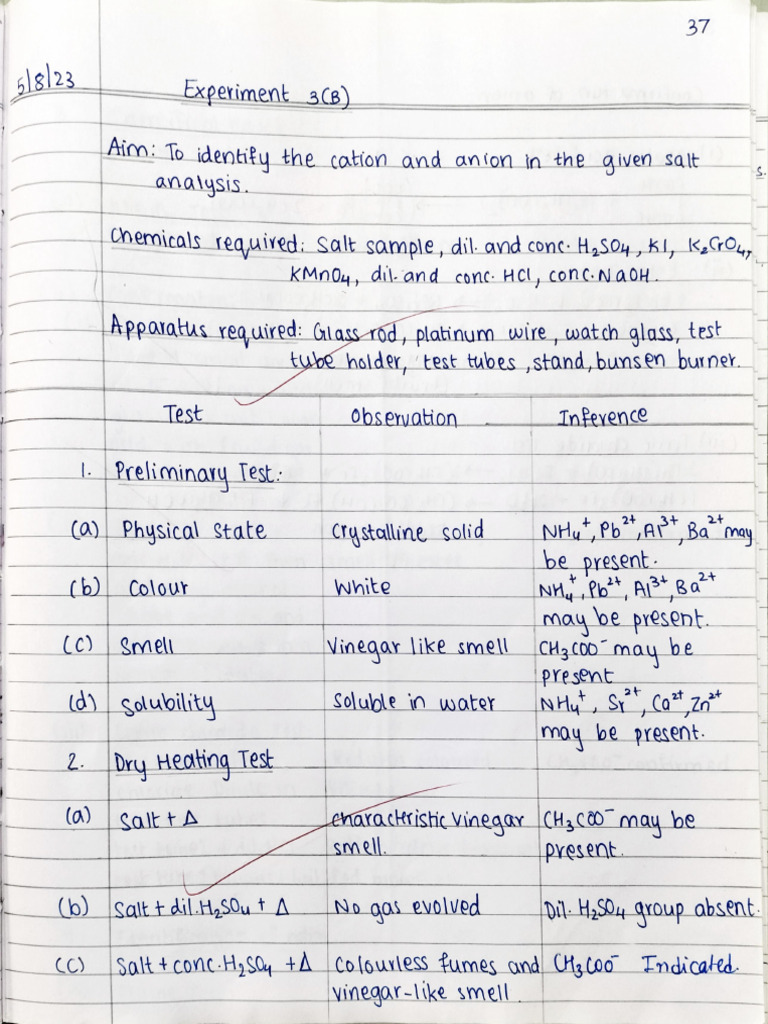 37
5/8/23
Experiment 3(B)
Aim: To identify the cation and anion in the given salt
analysis.
Chemicals required: Salt sample, dil. and conc. H₂SO₄, KI, K₂CrO₄,
KMnO₄, dil. and conc. HCl, conc. NaOH.
Apparatus required: Glass rod, platinum wire, watch glass, test
tube holder, test tubes, stand, bunsen burner.
Test Observation Inference
1. Preliminary Test:
(a) Physical state Crystalline solid NH₄⁺, Pb²⁺, Al³⁺, Ba²⁺ may
be present.
(b) Colour White NH₄⁺, Pb²⁺, Al³⁺, Ba²⁺
may be present.
(c) Smell Vinegar like smell CH₃COO⁻ may be
present
(d) Solubility Soluble in water NH₄⁺, Sr²⁺, Ca²⁺, Zn²⁺
may be present.
2. Dry Heating Test
(a) Salt + Δ characteristic vinegar CH₃COO⁻ may be
smell. present.
(b) Salt + dil. H₂SO₄ + Δ No gas evolved Dil. H₂SO₄ group absent.
(c) Salt + conc. H₂SO₄ + Δ Colourless fumes and CH₃COO⁻ Indicated.
vinegar-like smell.